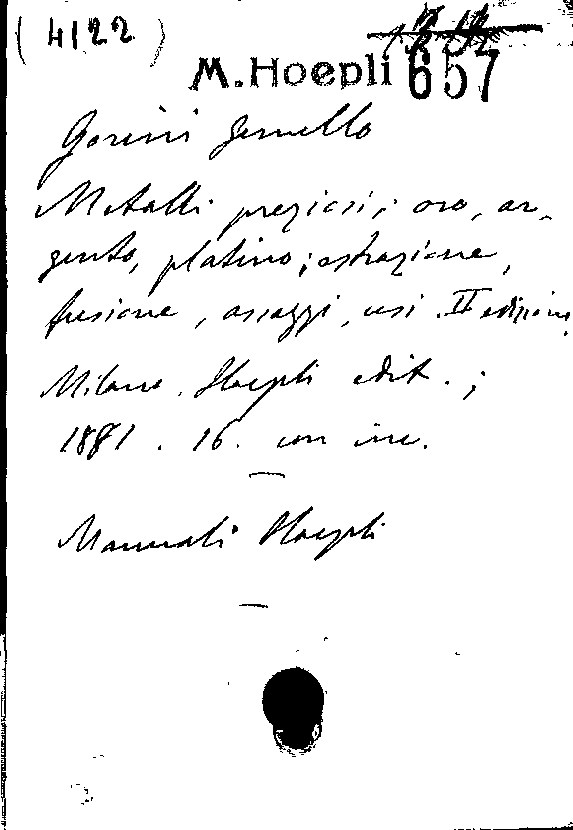 (4122)
M. Hoepli 657
Gorini Gemello
Metalli preziosi; oro, ar-
gento, platino; estrazione,
fusione, assaggi, usi. II edizione
Milano. Hoepli edit. ;
1881. 16. con inc.
Manuali Hoepli